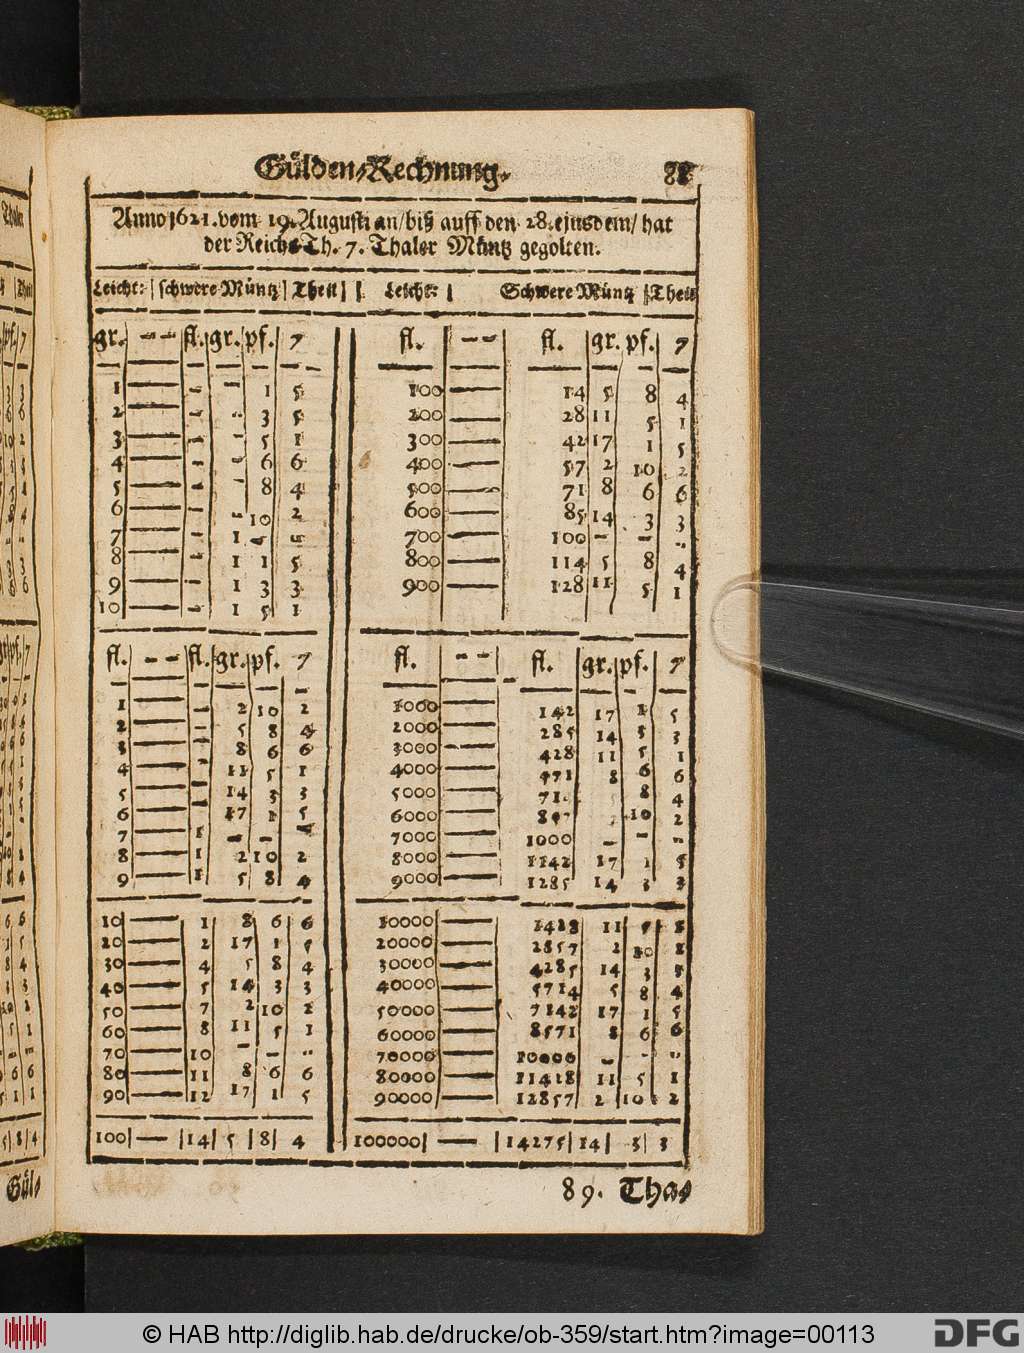 Gülden-Rechnung.
Anno 1621. vom 19. Augusti an/ biß auff den 28. ejusdem/ hat
der Reichs Th. 7. Thaler Müntz gegolten.
Leicht: | schwere Müntz | Theil | | Leicht: | Schwere Müntz | Theil
gr. -- fl. gr. pf. 7 fl. -- fl. gr. pf. 7
1 — - - 1 5 100 — 14 5 8 4
2 — - - 3 5 200 — 28 11 5 1
3 — - - 5 1 300 — 42 17 1 5
4 — - - 6 6 400 — 57 2 10 2
5 — - - 8 4 500 — 71 8 6 6
6 — - - 10 2 600 — 85 14 3 3
7 — - 1 - - 700 — 100 - - -
8 — - 1 1 5 800 — 114 5 8 4
9 — - 1 3 3 900 — 128 11 5 1
10 — - 1 5 1
fl. -- fl. gr. pf. 7 fl. -- fl. gr. pf. 7
1 — - 2 10 2 1000 — 142 17 1 5
2 — - 5 8 4 2000 — 285 14 3 3
3 — - 8 6 6 3000 — 428 11 5 1
4 — - 11 5 1 4000 — 571 8 6 6
5 — - 14 3 3 5000 — 8 4
6 — - 17 1 5 6000 — 10 2
7 — 1 - - - 7000 — 1000 - - -
8 — 1 2 10 2 8000 — 1142 17 1 5
9 — 1 5 8 4 9000 — 1285 14 3 3
10 — 1 8 6 6 10000 — 1428 11
20 — 2 17 1 5 20000 — 2857 2 10
30 — 4 5 8 4 30000 — 4285 14 3 3
40 — 5 14 3 3 40000 — 5714 5 8 4
50 — 7 2 10 2 50000 — 7142 17 1 5
60 — 8 11 5 1 60000 — 8571 8 6 6
70 — 10 - - - 70000 — 10000 - - -
80 — 11 8 6 6 80000 — 11428 11 5 1
90 — 12 17 1 5 90000 — 12857 2 10 2
100 — 14 5 8 4 100000 — 14275 14 3 3
89. Tha-
Gül-
© HAB http://diglib.hab.de/drucke/ob-359/start.htm?image=00113
DFG